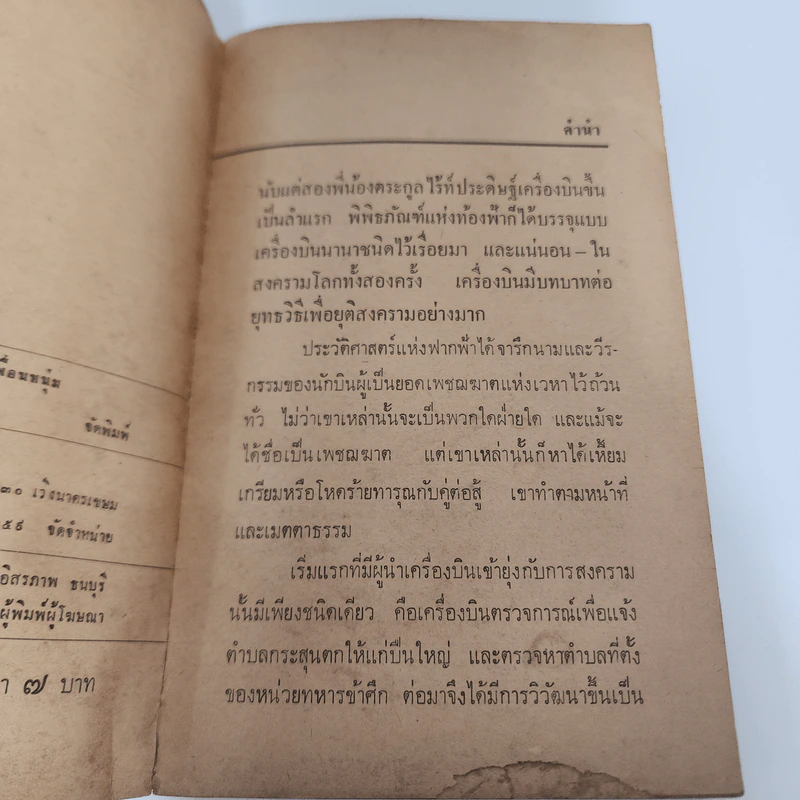 เพื่อนหนุ่ม
จัดพิมพ์
๓๐ เวิ้งนาครเขษม
๕๙ จัดจำหน่าย
อิสรภาพ ธนบุรี
ผู้พิมพ์ผู้โฆษณา
๗ บาท
คำนำ
นับแต่สองพี่น้องตระกูลไร้ท์ประดิษฐ์เครื่องบินขึ้น
เป็นลำแรก พิพิธภัณฑ์แห่งท้องฟ้าก็ได้บรรจุแบบ
เครื่องบินนานาชนิดไว้เรื่อยมา และแน่นอน – ใน
สงครามโลกทั้งสองครั้ง เครื่องบินมีบทบาทต่อ
ยุทธวิธีเพื่อยุติสงครามอย่างมาก
ประวัติศาสตร์แห่งฟากฟ้าได้จารึกนามและวีร-
กรรมของนักบินผู้เป็นยอดเพชฌฆาตแห่งเวหาไว้ถ้วน
ทั่ว ไม่ว่าเขาเหล่านั้นจะเป็นพวกใดฝ่ายใด และแม้จะ
ได้ชื่อเป็นเพชฌฆาต แต่เขาเหล่านั้นก็หาได้เหี้ยม
เกรียมหรือโหดร้ายทารุณกับคู่ต่อสู้ เขาทำตามหน้าที่
และเมตตาธรรม
เริ่มแรกที่มีผู้นำเครื่องบินเข้ายุ่งกับการสงคราม
นั้นมีเพียงชนิดเดียว คือเครื่องบินตรวจการณ์เพื่อแจ้ง
ตำบลกระสุนตกให้แก่ปืนใหญ่ และตรวจหาตำบลที่ตั้ง
ของหน่วยทหารข้าศึก ต่อมาจึงได้มีการวิวัฒนาขึ้นเป็น